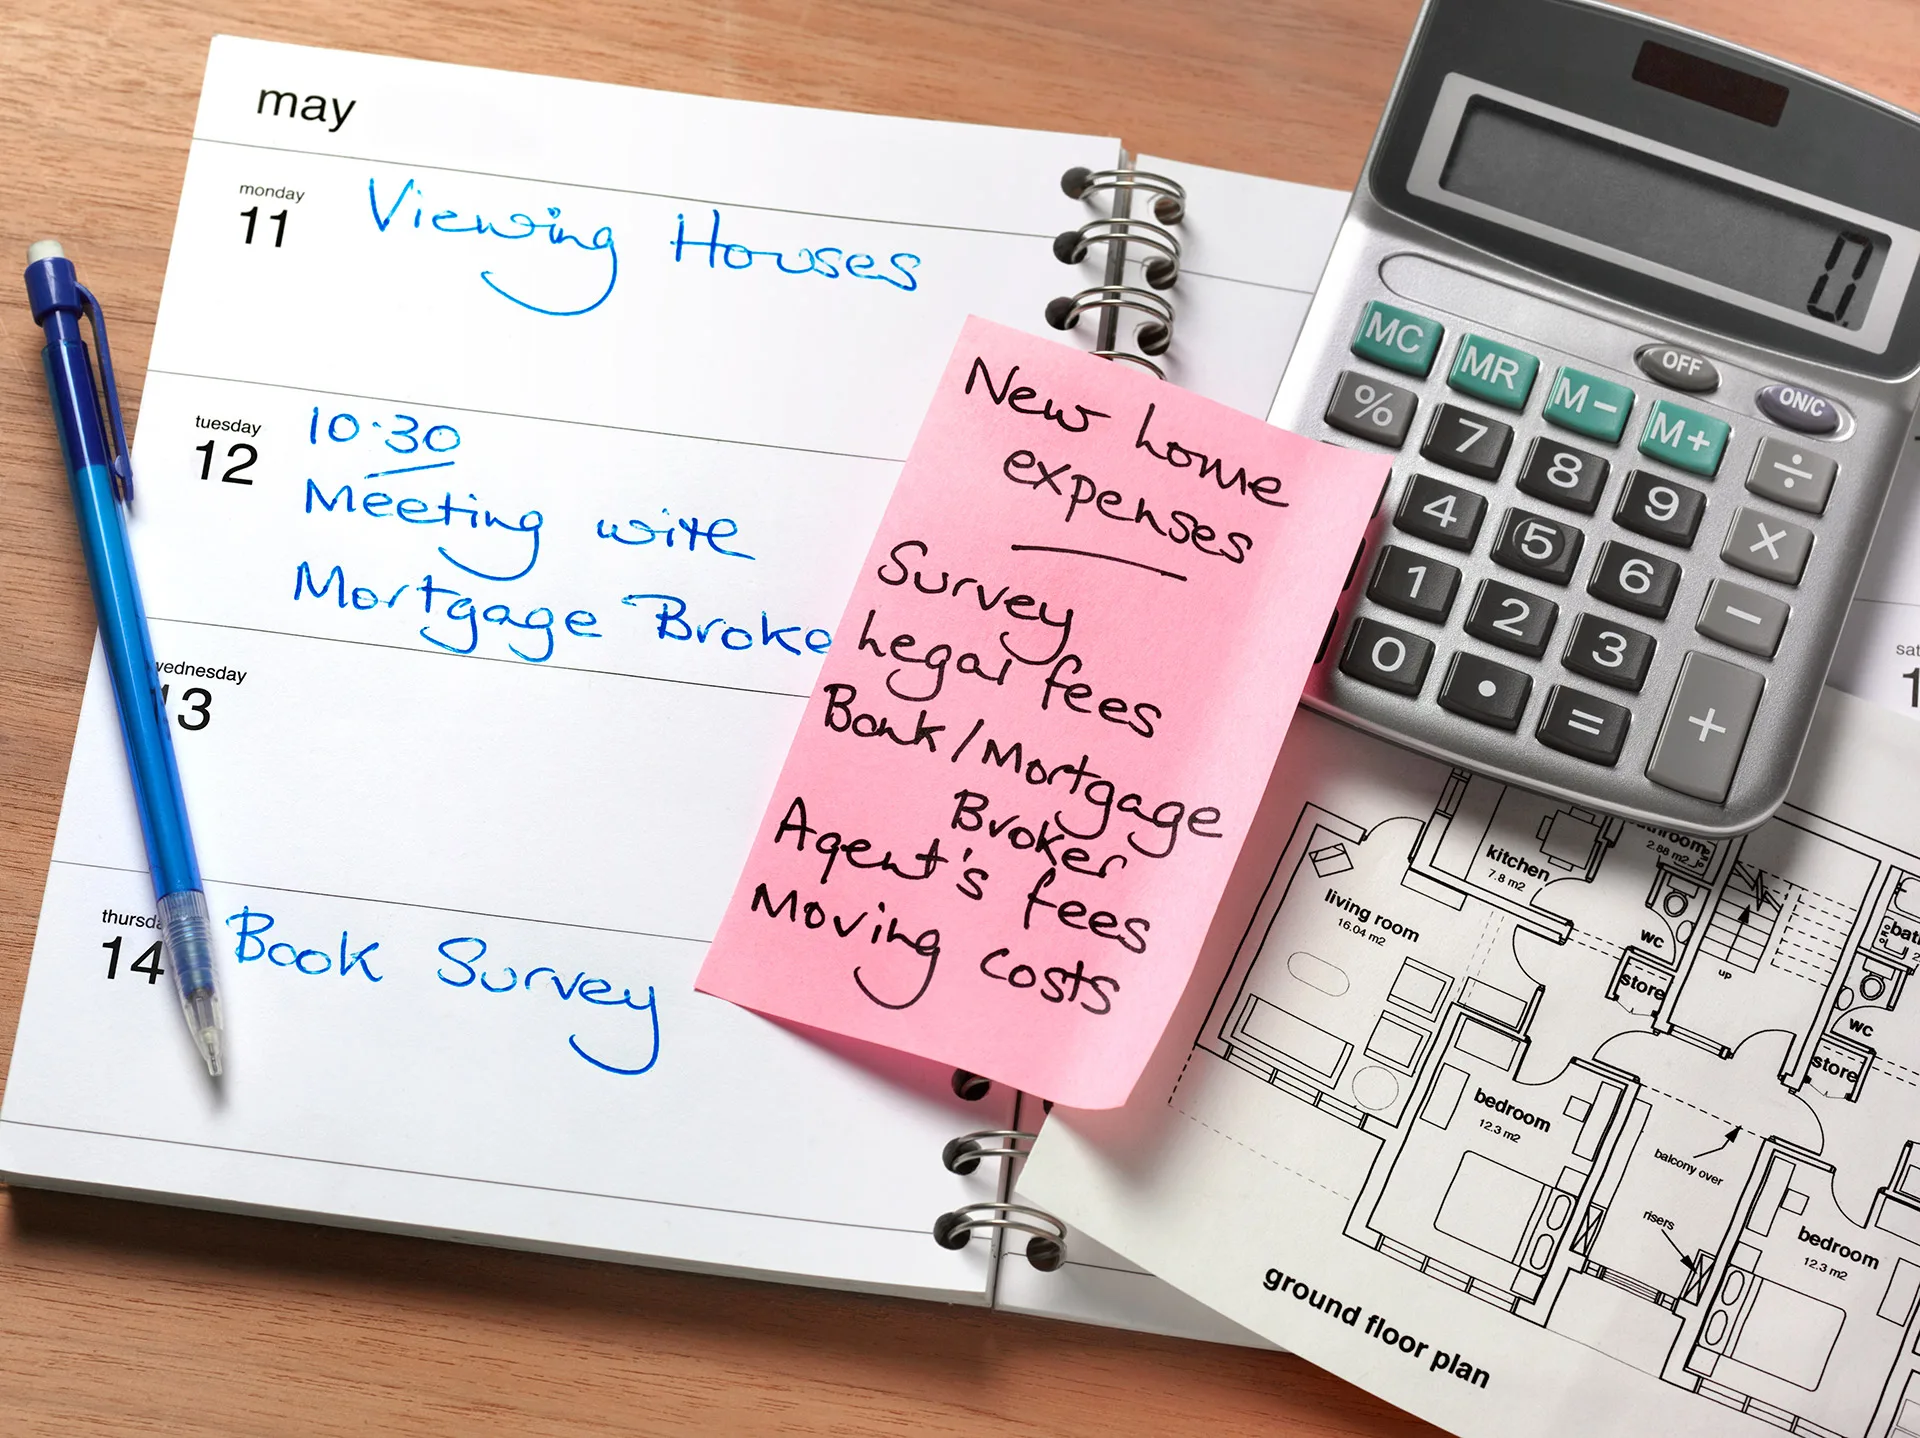 may
monday
11
Viewing Houses
tuesday
12
10.30
Meeting with
Mortgage Broke
wednesday
13
thursda
14
Book Survey
New home
expenses
Survey
Legal fees
Bank/Mortgage
Broker
Agent's fees
Moving costs
0.
OFF
ON/C
MC MR M− M+
% 7 8 9 ÷
4 5 6 ×
1 2 3 −
0 . = +
sat
1
kitchen
7.8 m2
throom
2.88 m2
living room
16.04 m2
wc
store
up
bath
2
wc
store
bedroom
12.3 m2
balcony over
risers
bedroom
12.3 m2
ground floor plan